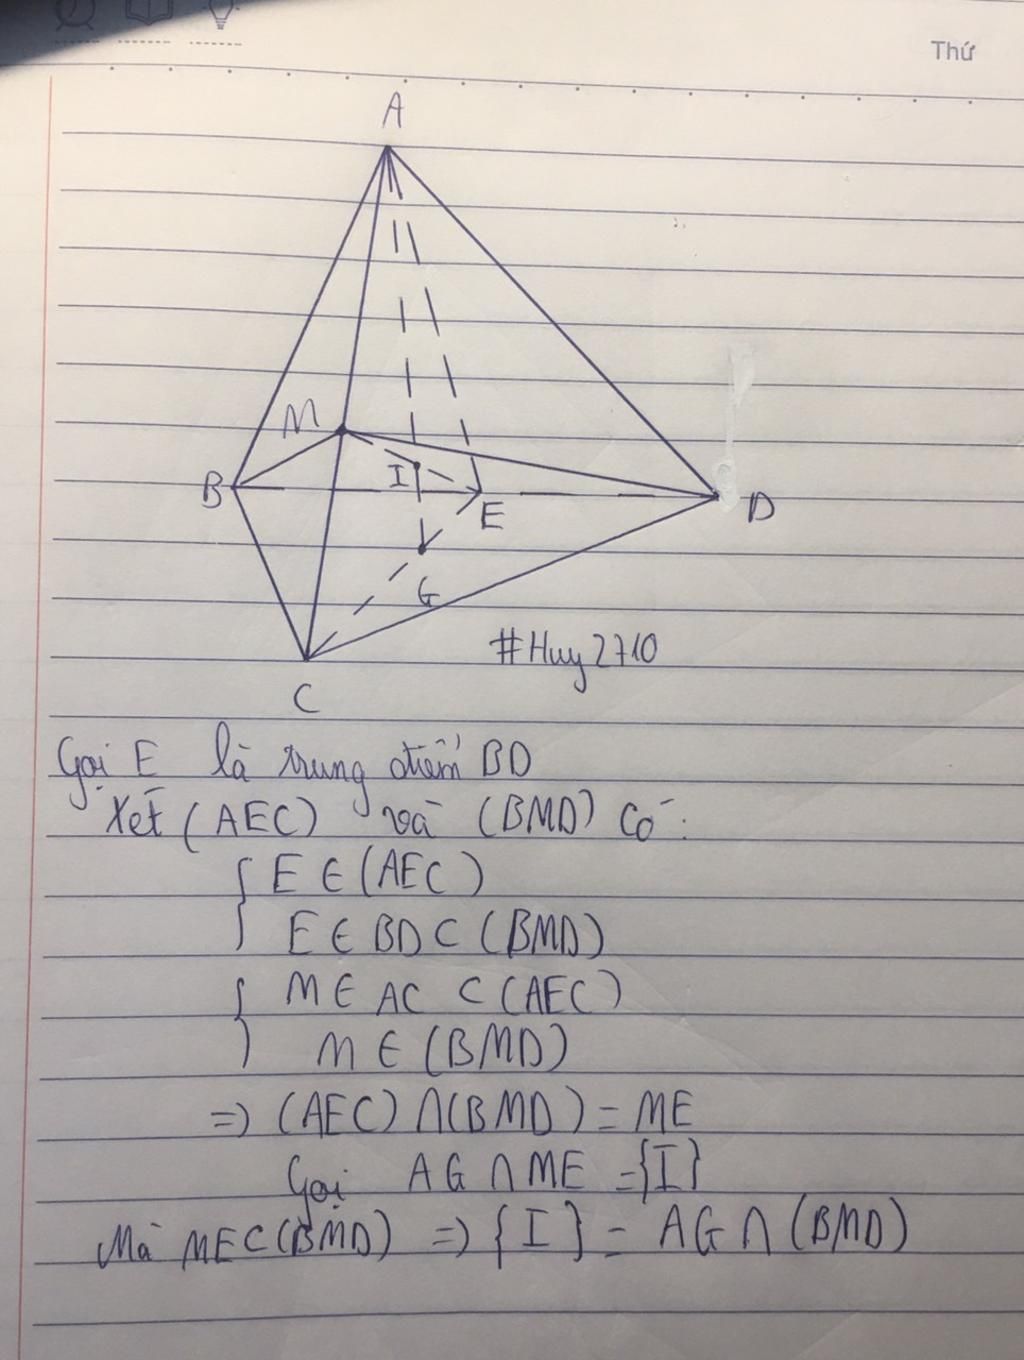 Thứ
A
M
B
I
E
D
G
#Huy2710
C
Gọi E là trung điểm BD
Xét (AEC) và (BMD) có:
{ E ∈ (AEC)
E ∈ BD ⊂ (BMD)
{ M ∈ AC ⊂ (AEC)
M ∈ (BMD)
=> (AEC) ∩ (BMD) = ME
Gọi AG ∩ ME = {I}
Mà ME ⊂ (BMD) => {I} = AG ∩ (BMD)